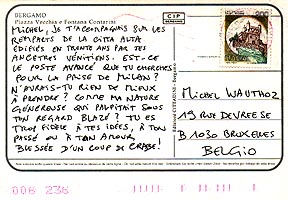 BERGAMO
Piazza Vecchia e Fontana Contarini
MICHEL, JE T'ACCOMPAGNAIS SUR LES
REMPARTS DE LA CITTA ALTA
ÉDIFIÉS EN TRENTE ANS PAR TES
ANCÊTRES VÉNITIENS. EST-CE
LE POSTE AVANCÉ QUE TU CHERCHES
POUR LA PRISE DE MILAN?
N'AURAIS-TU RIEN DE MIEUX
À PRENDRE? COMME MA NATURE
GÉNÉREUSE QUI PALPITAIT SOUS
TON REGARD BLAZÉ? TU ES
TROP FIDÈLE À TES IDÉES, À TON
PASSÉ OU À TON AMOUR
BLESSÉE D'UN COUP DE
MICHEL WAUTHOZ
19 RUE DEVREESE
B 1030 BRUXELLES
BELGIO
006 236